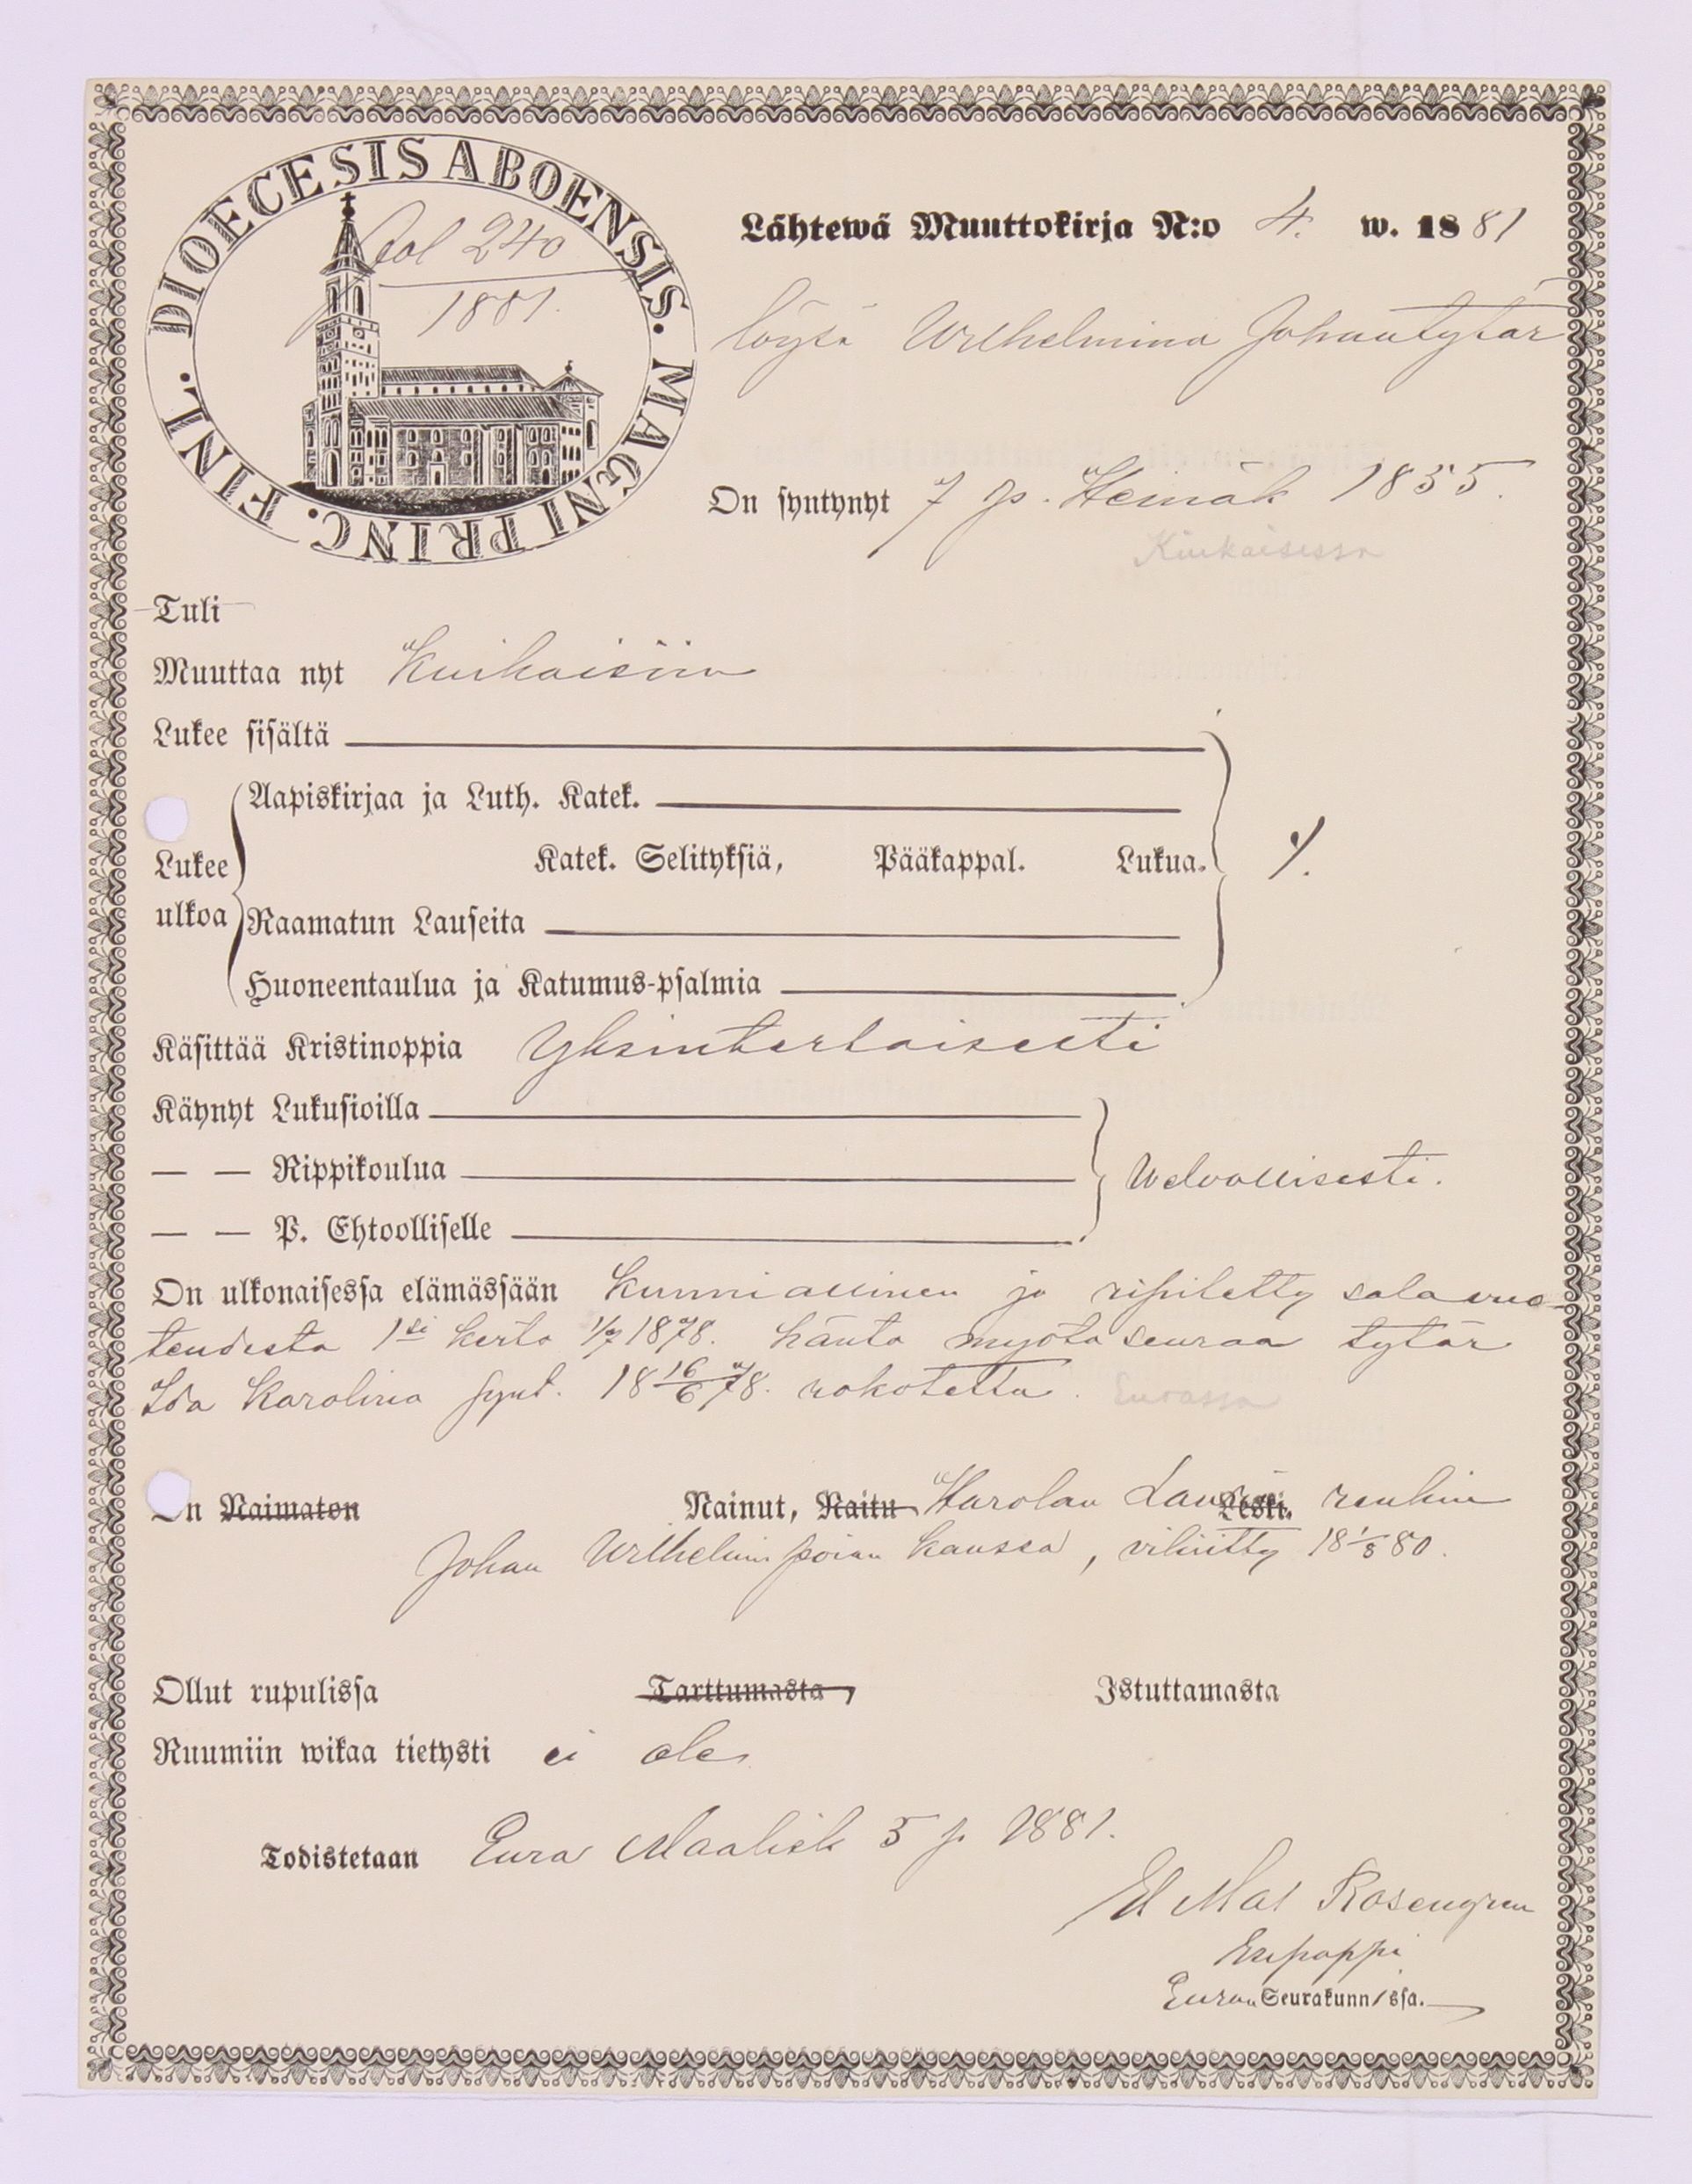 DIOECESIS ABOENSIS. MAGNI PRINC. FINL.
Fol 240
1881.
Lähtewä Muuttokirja N:o 4. w. 1881
löysä Wilhelmina Johantytär
On syntynyt 7 p. Heinäk 1855.
Kiukaisissa
Tuli
Muuttaa nyt Kiukaisiin
Lukee sisältä
Aapiskirjaa ja Luth. Katek.
Lukee ulkoa
Katek. Selityksiä, Pääkappal. Lukua.
Raamatun Lauseita
Huoneentaulua ja Katumus-psalmia
Käsittää Kristinoppia Yksinkertaisesti
Käynyt Lukusioilla
— — Rippikoulua
Welvollisesti.
— — P. Ehtoolliselle
On ulkonaisessa elämässään kunniallinen ja ripitetty salavuo-
teudesta 1si kerta 1/7 1878. häntä myötä seuraa tytär
Ida Karolina synt. 18 16/6 78. rokotettu. Eurassa
On Naimaton Nainut, Naitu Leski. Harolan Laurin renkin
Johan Wilhelminpoian kanssa, vihitty 18 1/8 80.
Ollut rupulissa Tarttumasta, Istuttamasta
Ruumiin wikaa tietysti ei ole
Todistetaan Eura Maalisk 5 p. 1881.
Rosengren
Euran Seurakunnissa.